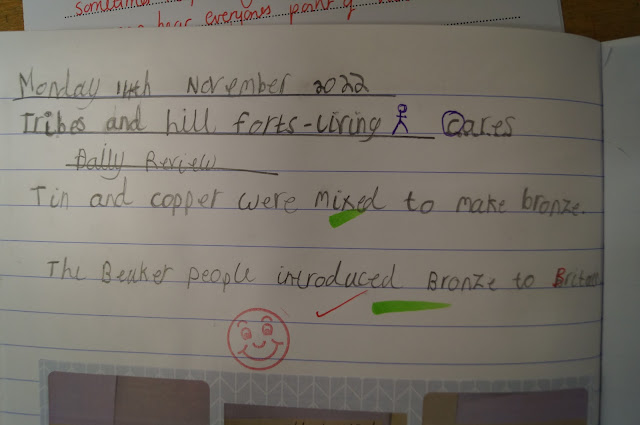 hear everyones point of
Monday 14th November 2022
Tribes and hill forts-Living
Daily Review
Tin and copper were mixed to make bronze.
The Beaker people introduced Bronze to